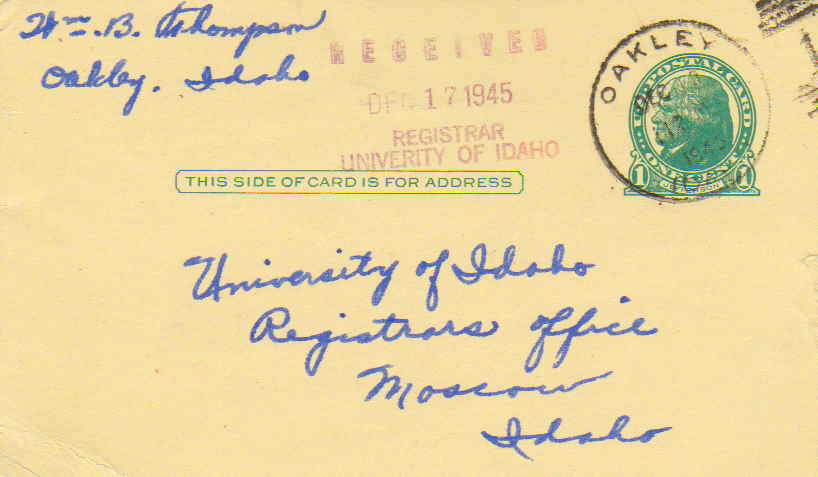 Wm. B. Thompson
Oakley, Idaho
RECEIVED
DEC 17 1945
REGISTRAR
UNIVERITY OF IDAHO
OAKLEY
DEC
1945
U.S. POSTAL CARD
ONE CENT
1 JEFFERSON 1
THIS SIDE OF CARD IS FOR ADDRESS
University of Idaho
Registrars office
Moscow
Idaho